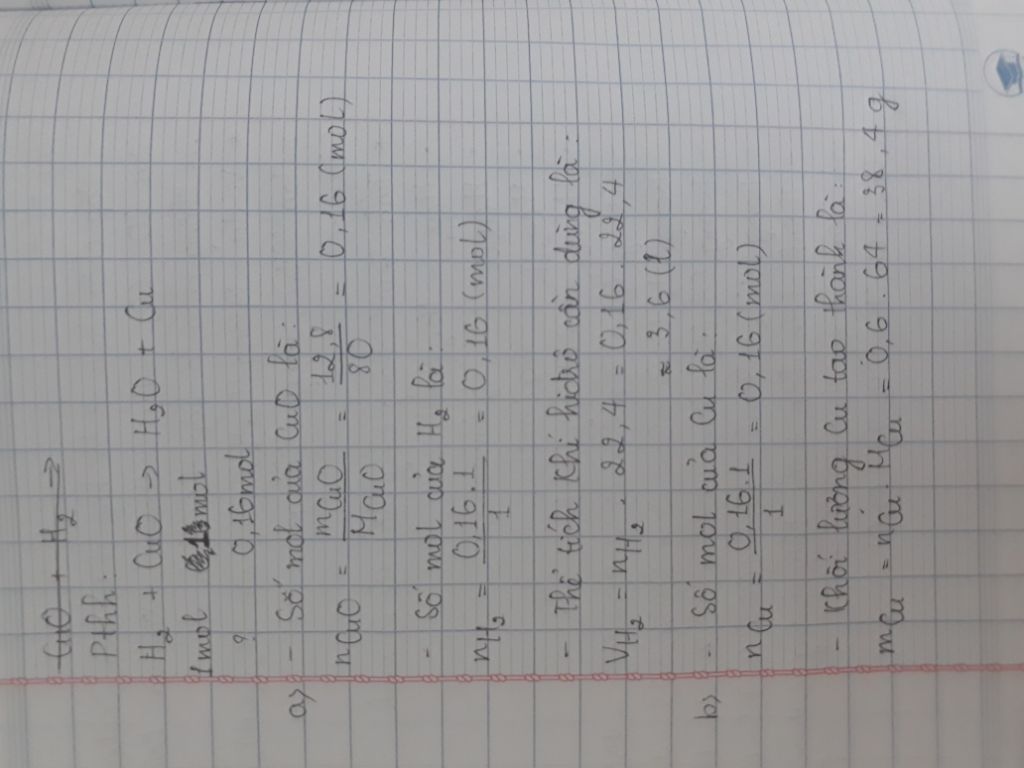 CuO + H₂ →
Pthh:
H₂ + CuO → H₂O + Cu
1mol 1mol
? 0,16mol
a) - Số mol của CuO là:
nCuO = mCuO / MCuO = 12,8 / 80 = 0,16 (mol)
- Số mol của H₂ là:
nH₂ = 0,16.1 / 1 = 0,16 (mol)
- Thể tích khí hidrô cần dùng là:
VH₂ = nH₂ . 22,4 = 0,16 . 22,4
≈ 3,6 (l)
b) - Số mol của Cu là:
nCu = 0,16.1 / 1 = 0,16 (mol)
- Khối lượng Cu tạo thành là:
mCu = nCu . MCu = 0,6 . 64 = 38,4 g